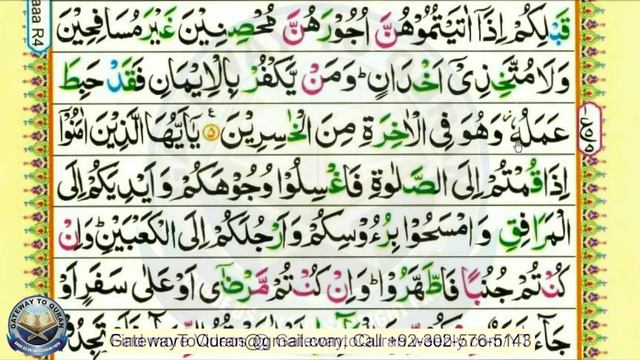 قَبْلِكُمْ اِذَاۤ اٰتَيْتُمُوْهُنَّ اُجُوْرَهُنَّ مُحْصِنِيْنَ غَيْرَ مُسَافِحِيْنَ
وَلَا مُتَّخِذِيْۤ اَخْدَانٍ ؕ وَمَنْ يَّكْفُرْ بِالْاِيْمَانِ فَقَدْ حَبِطَ
عَمَلُهٗ ؗ وَهُوَ فِي الْاٰخِرَةِ مِنَ الْخٰسِرِيْنَ ۵ يٰۤاَيُّهَا الَّذِيْنَ اٰمَنُوْۤا
اِذَا قُمْتُمْ اِلَى الصَّلٰوةِ فَاغْسِلُوْا وُجُوْهَكُمْ وَاَيْدِيَكُمْ اِلَى
الْمَرَافِقِ وَامْسَحُوْا بِرُءُوْسِكُمْ وَاَرْجُلَكُمْ اِلَى الْكَعْبَيْنِ ؕ وَاِنْ
كُنْتُمْ جُنُبًا فَاطَّهَّرُوْا ؕ وَاِنْ كُنْتُمْ مَّرْضٰۤى اَوْ عَلٰى سَفَرٍ اَوْ
جَآءَ
aaa R4
GATEWAY TO QURAN
Call +92-302-576-5143